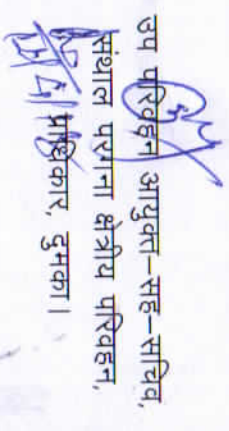 उप परिवहन आयुक्त-सह-सचिव,
संथाल परगना क्षेत्रीय परिवहन,
प्राधिकार, दुमका।